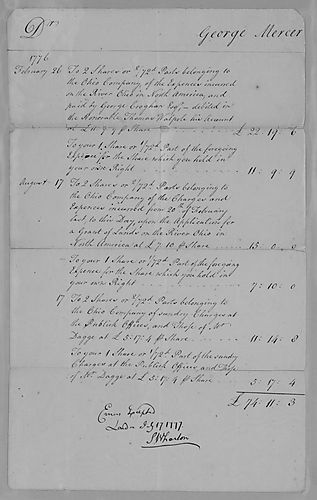 Dr. George Mercer
1776
February 26 To 2 Shares or 2/72d Parts belonging to
the Ohio Company of the Expences incurred
on the River Ohio in North America, and
paid by George Croghan Esqr – debited in
the Honorable Thomas Walpole his Account
at £ 11..9..9 p Share £ 22..19..6
To your 1 Share or 1/72d Part of the foregoing
Expence for the Share which you hold in
your own Right 11..9..9
August 17 To 2 Shares or 2/72d Parts belonging to
the Ohio Company of the Charges and
Expences incurred from 20th of February
last to this Day, upon the Application for
a Grant of Lands on the River Ohio in
North America at £ 7..10 p Share 15..0..0
To your 1 Share or 1/72d Part of the foregoing
Expence for the Share which you hold in
your own Right 7..10..0
17 To 2 Shares or 2/72d Parts belonging to
the Ohio Company of sundry Charges at
the Publick Offices, and those of Mr
Dagge at £ 5..17..4 p Share 11..14..8
To your 1 Share or 1/72d Part of the sundry
Charges at the Publick Offices, and those
of Mr Dagge at £ 5..17..4 p Share 5..17..4
£ 74..11..3
Errors Excepted
London 17 1777
S Wharton